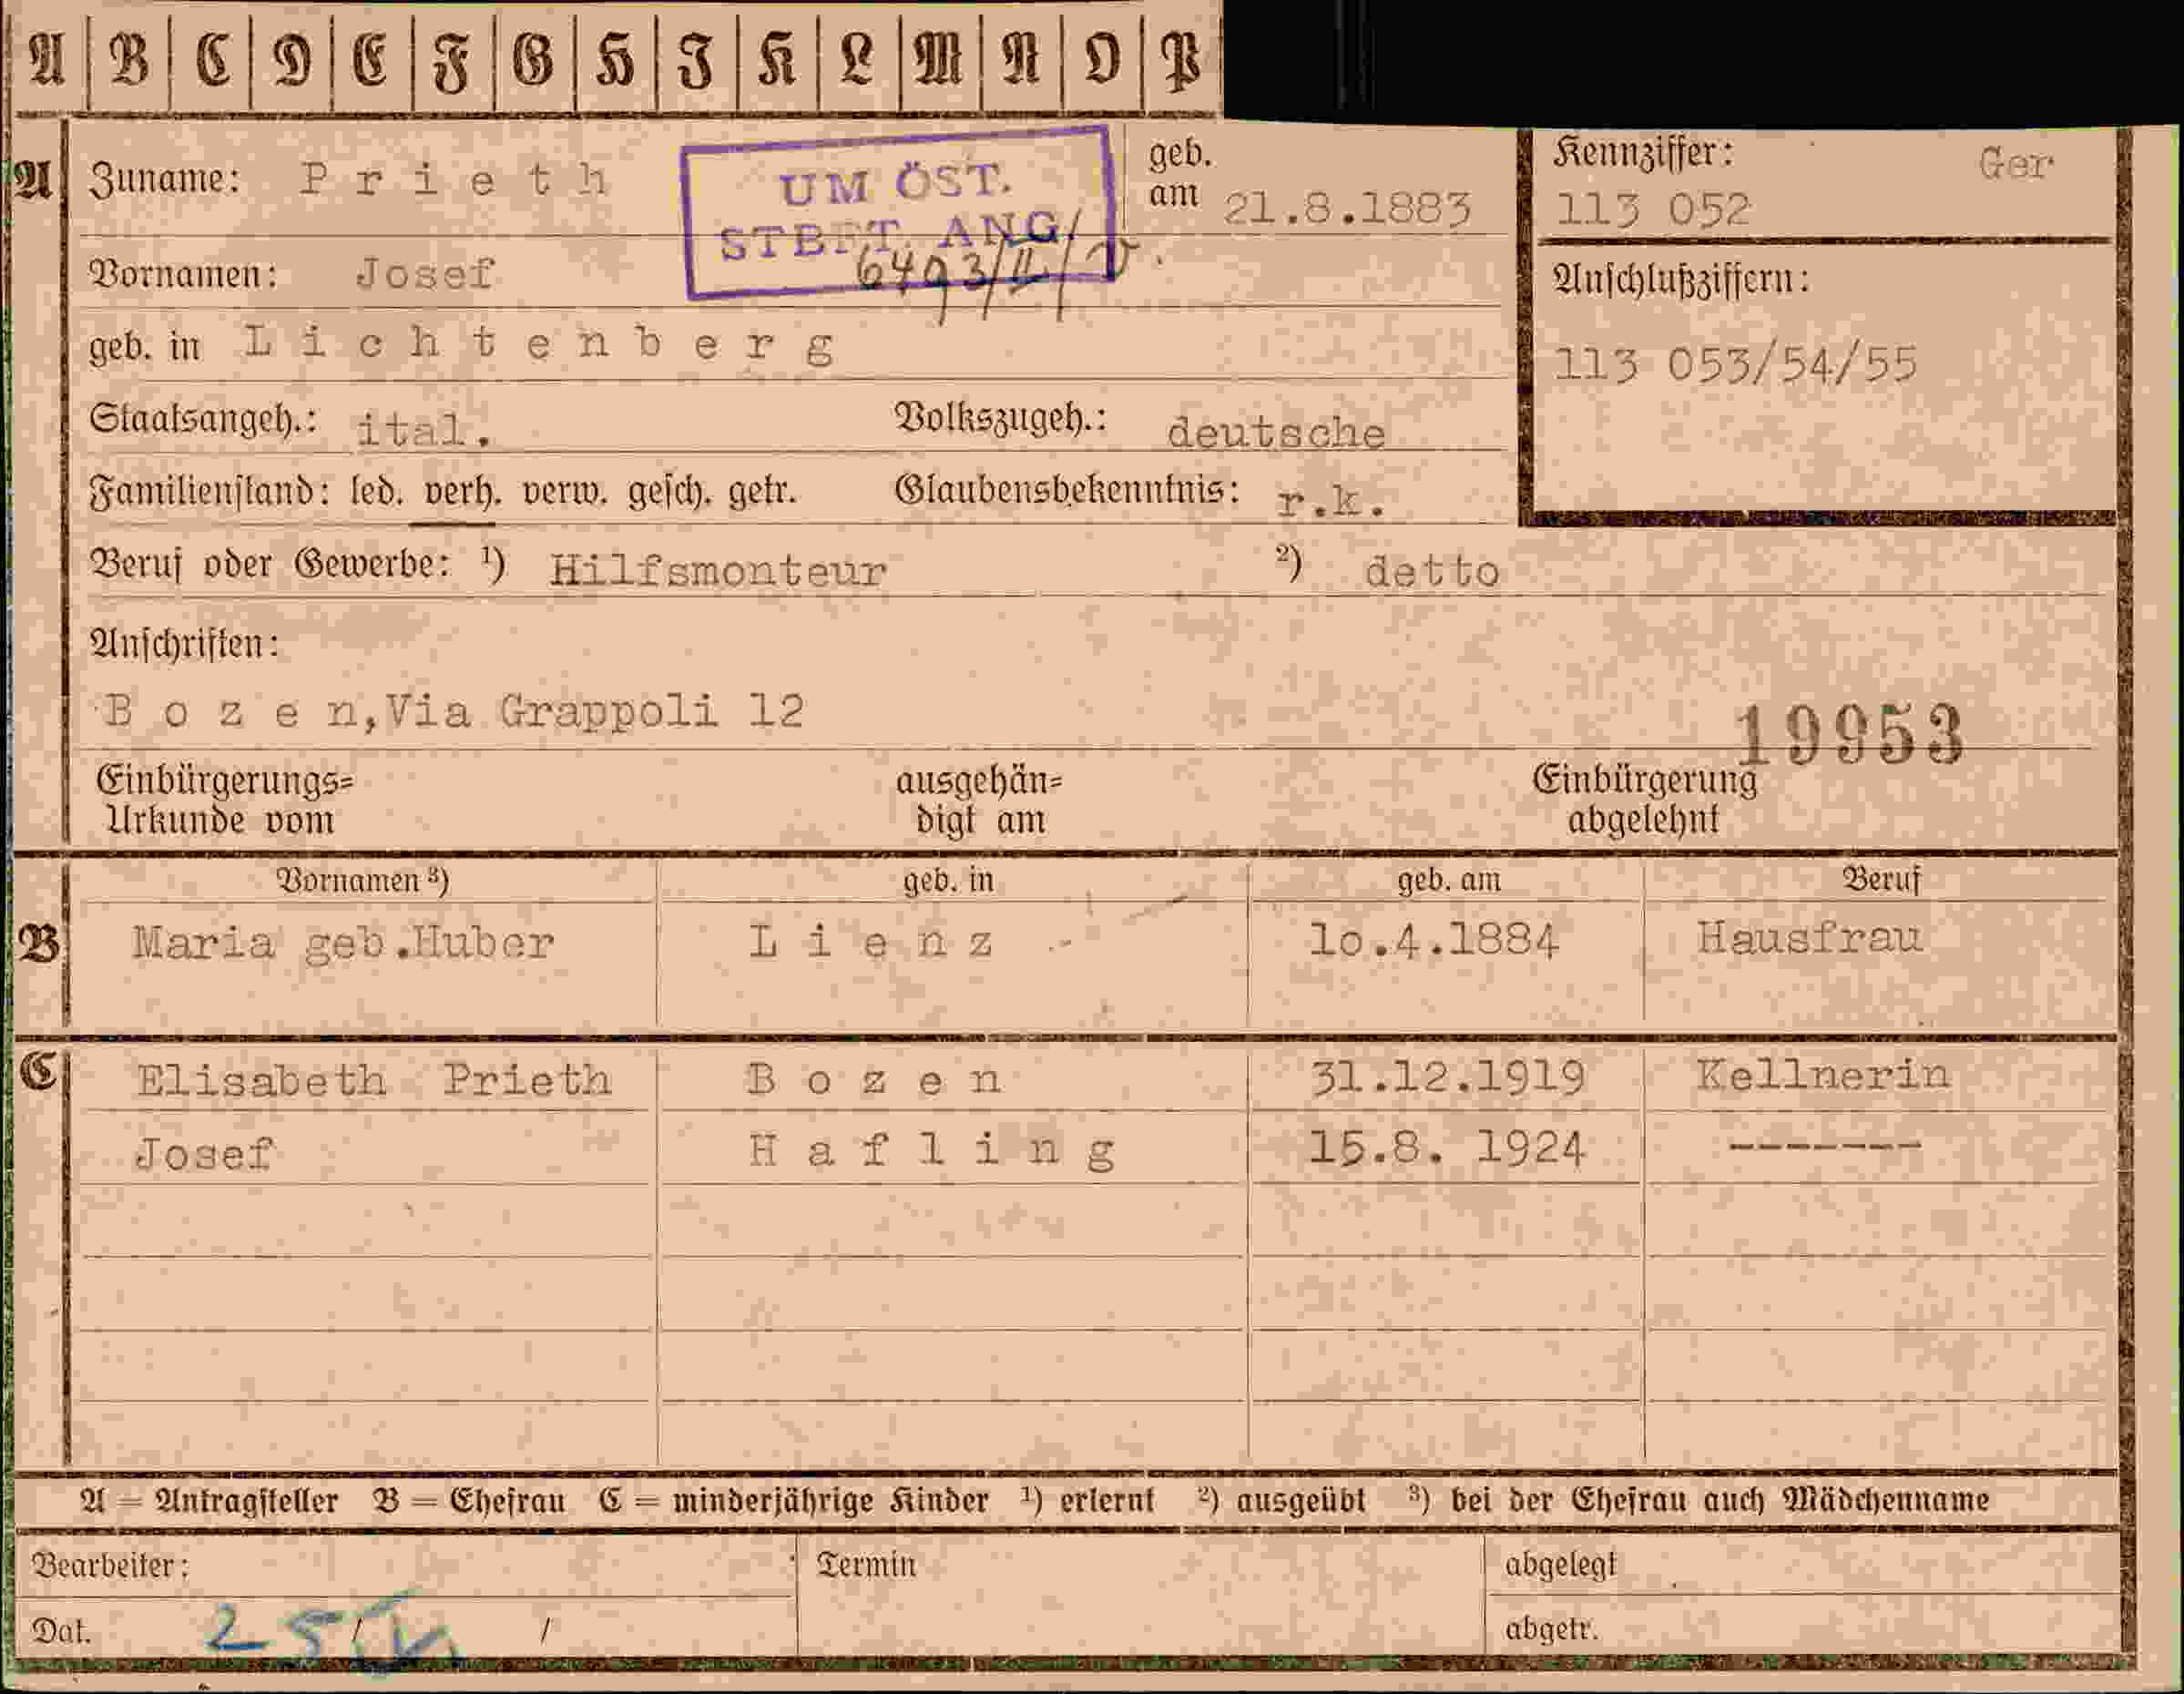 A B C D E F G H I K L M N O P
A Zuname: Prieth
UM ÖST.
STBFT. ANG.
6493/II/V.
geb. am 21.8.1883
Kennziffer: Ger
113 052
Vornamen: Josef
Anschlußziffern:
113 053/54/55
geb. in Lichtenberg
Staatsangeh.: ital. Volkszugeh.: deutsche
Familienstand: led. verh. verw. gesch. getr. Glaubensbekenntnis: r.k.
Beruf oder Gewerbe: 1) Hilfsmonteur 2) detto
Anschriften:
Bozen,Via Grappoli 12
19953
Einbürgerungs= ausgehän= Einbürgerung
Urkunde vom digt am abgelehnt
Vornamen 3) geb. in geb. am Beruf
B Maria geb.Huber Lienz 10.4.1884 Hausfrau
C Elisabeth Prieth Bozen 31.12.1919 Kellnerin
Josef Hafling 15.8. 1924 -------
A = Antragsteller B = Ehefrau C = minderjährige Kinder 1) erlernt 2) ausgeübt 3) bei der Ehefrau auch Mädchenname
Bearbeiter: Termin abgelegt
Dat. 25 / / abgetr.